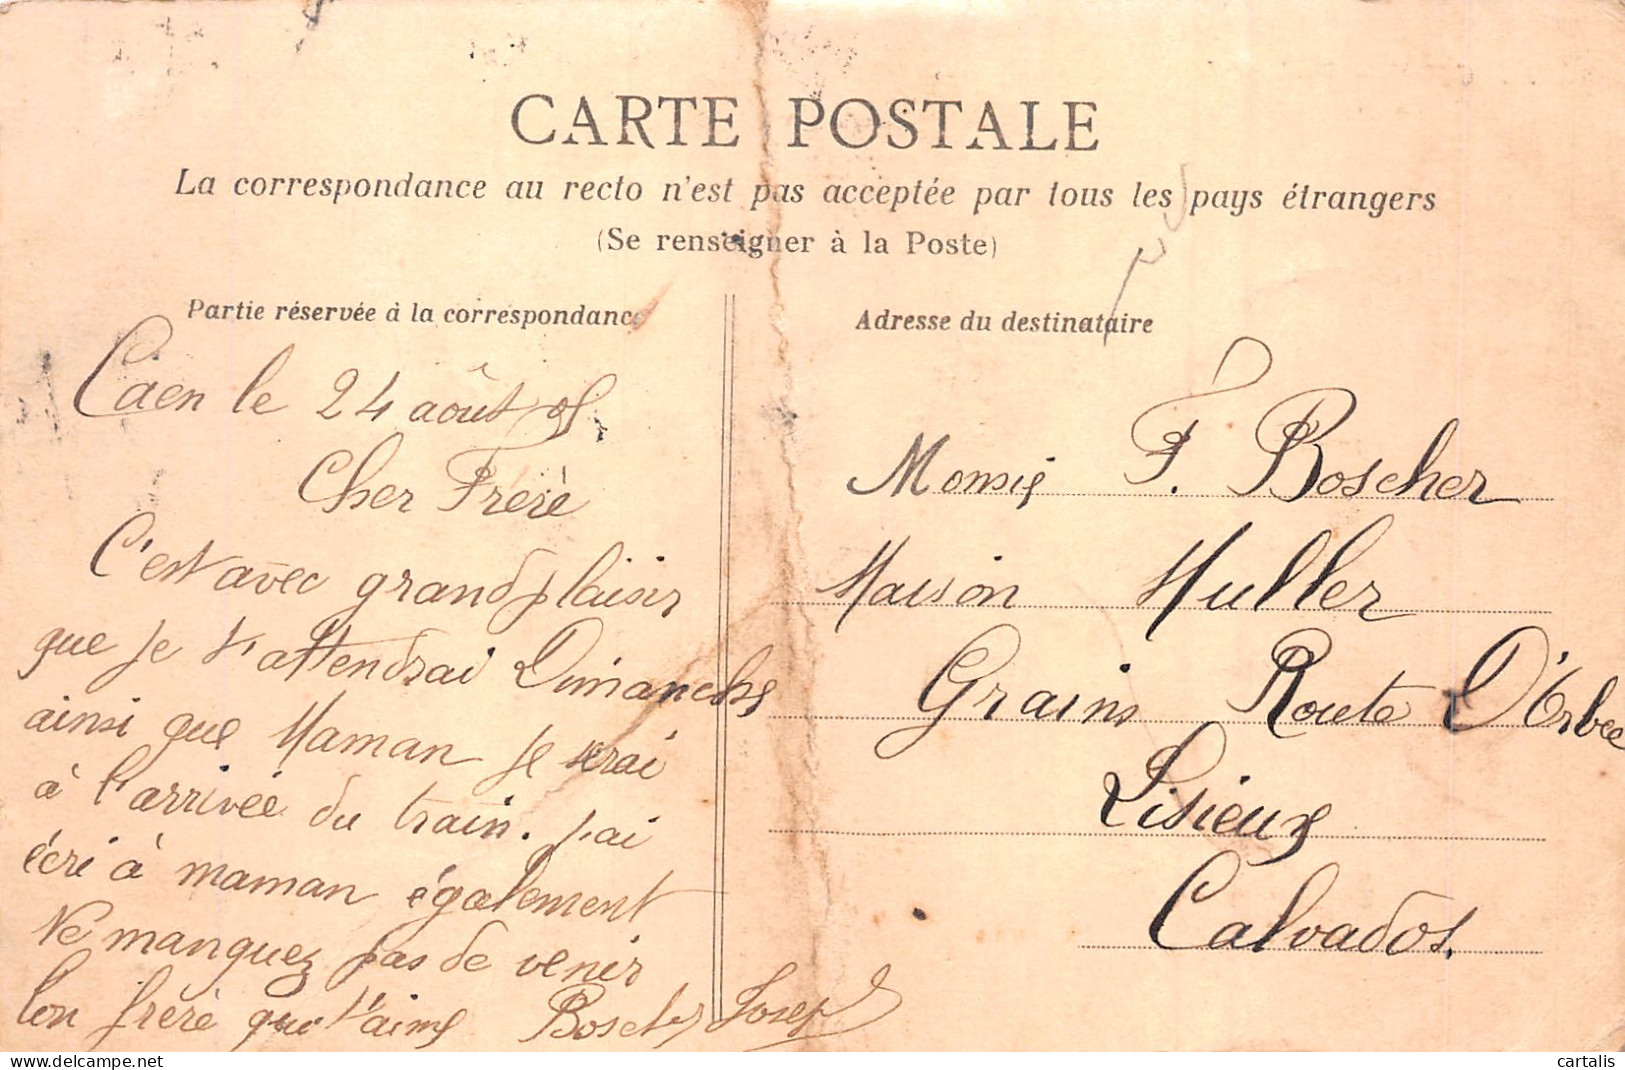 CARTE POSTALE
La correspondance au recto n'est pas acceptée par tous les pays étrangers
(Se renseigner à la Poste)
Partie réservée à la correspondance
Caen le 24 août 05
Cher Frère
C'est avec grand plaisir
que je t'attendrai Dimanche
ainsi que Maman je serai
à l'arrivée du train. J'ai
écri à maman également
Ne manquez pas de venir
Ton frère qui t'aime Boscher Joseph
Adresse du destinataire
F. Boscher
Maison Muller
Grains Route D'Orbec
Lisieux
Calvados.
cartalis